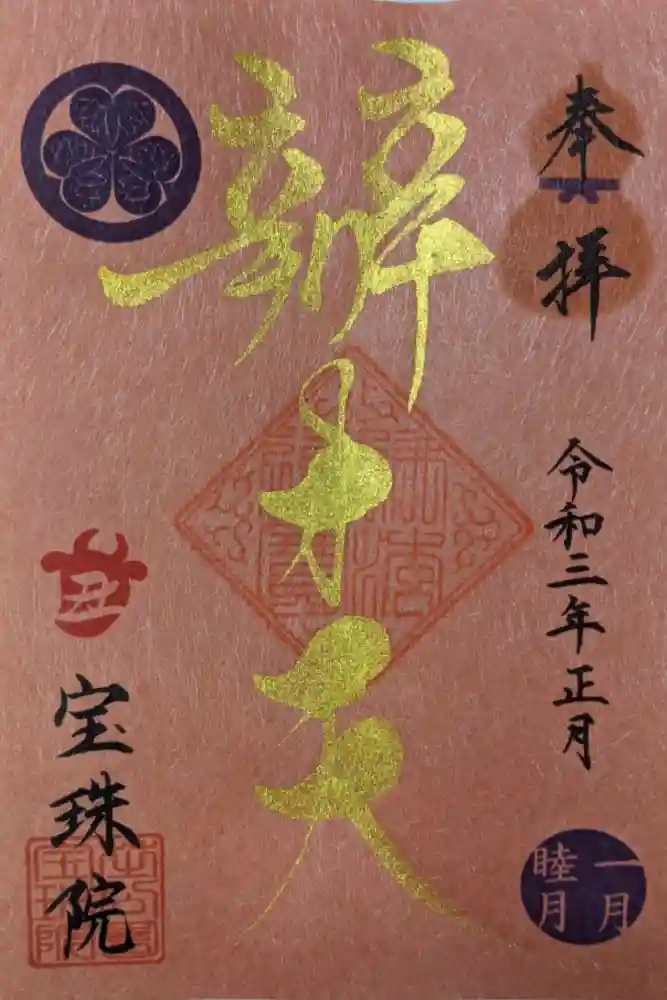 奉拝
令和三年正月
一月
睦月
辨才天
丑
宝珠院